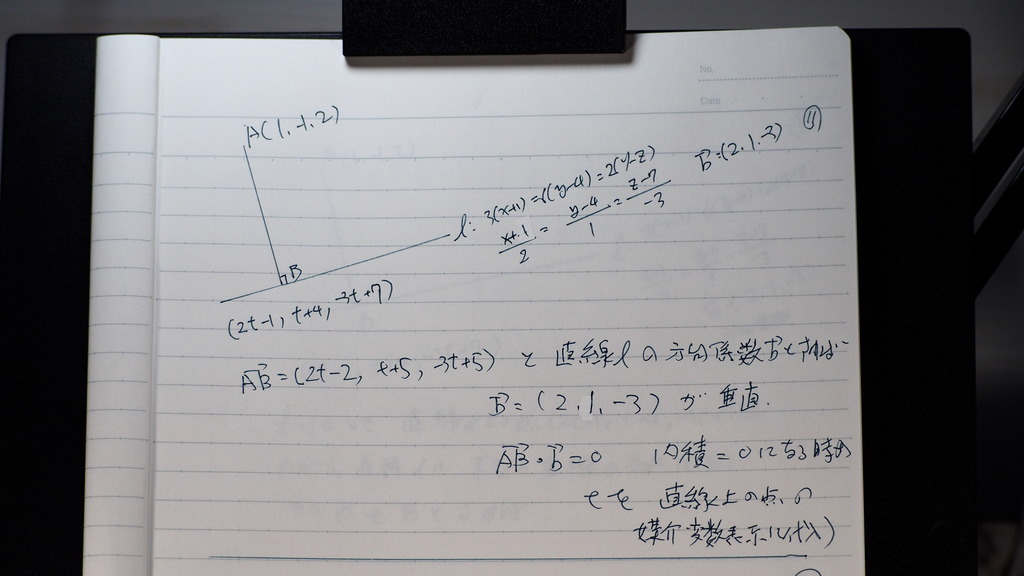 No.
Date
⑪
A(1,-1,2)
l: 3(x+1)=6(y-4)=2(7-z)
(x+1)/2 = (y-4)/1 = (z-7)/-3
b=(2,1,-3)
B
(2t-1, t+4, -3t+7)
AB=(2t-2, t+5, -3t+5) と 直線lの方向係数bと
b=(2,1,-3) が 垂直.
AB・b=0 内積=0になる時の
tを 直線上の点の
媒介変数表示に代入)